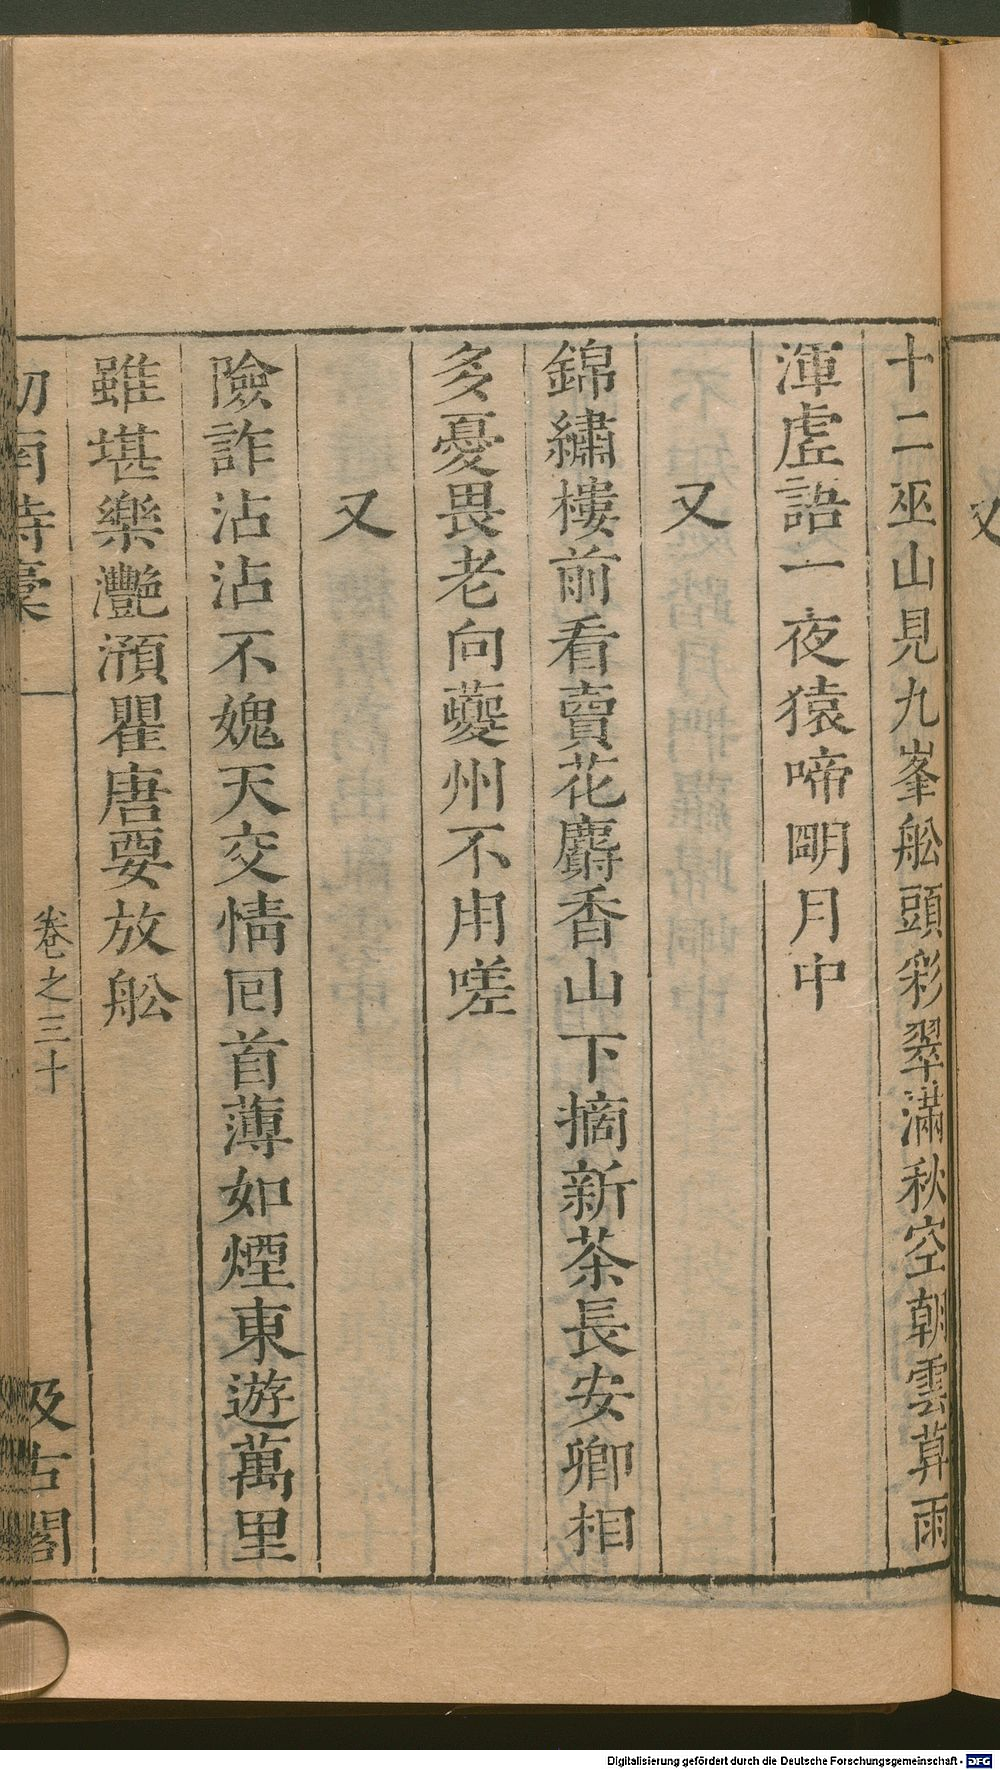 又
十二巫山見九峯舩頭彩翠滿秋空朝雲暮雨
渾虛語一夜猿啼明月中
又
錦繡樓前看賣花麝香山下摘新茶長安卿相
多憂畏老向夔州不用嗟
又
險詐沾沾不媿天交情回首薄如煙東遊萬里
雖堪樂灩澦瞿唐要放舩
劒南詩稾
卷之三十
汲古閣
Digitalisierung gefördert durch die Deutsche Forschungsgemeinschaft - DFG